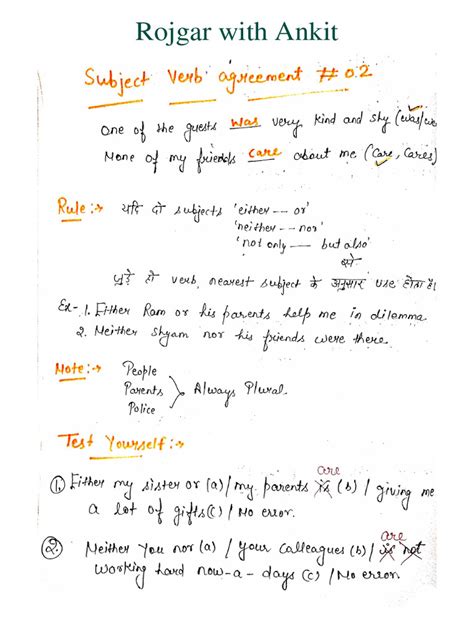 Rojgar with Ankit
Subject Verb agreement # 0.2
One of the guests was very kind and shy (was/we
None of my friends care about me (Care, Cares)
Rule :→ यदि दो subjects 'either --- or'
'neither --- nor'
'not only —— but also'
से
जुड़े हो verb, nearest subject के अनुसार use होता है।
Ex- 1. Either Ram or his parents help me in dilemma.
2. Neither Shyam nor his friends were there.
Note :→ People
Parents
Police
Always Plural.
Test Yourself :→
①. Either my sister or (a) / my parents is are (b) / giving me
a lot of gifts (c) / No error.
②. Neither You nor (a) / your colleagues (b) / is are not
working hard now-a-days (c) / No error.